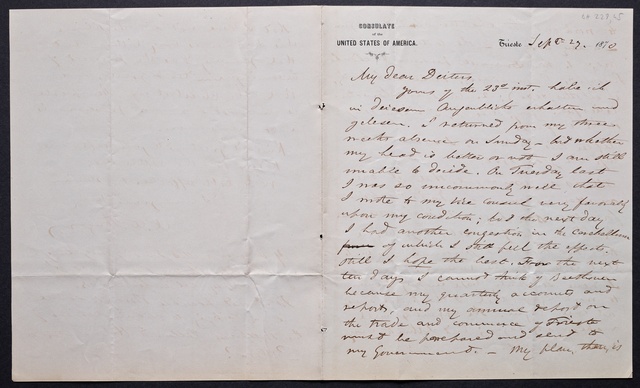 CONSULATE
of the
UNITED STATES OF AMERICA.
Trieste Sept 27. 1870
My dear Deiters,
Yours of the 23d inst. habe ich
in diesem Augenblicke erhalten und
gelesen. I returned from my three
weeks absence on Sunday – but whether
my head is better or not I am still
unable to decide. On Tuesday last
I was so uncommonly well that
I wrote to my Vice Consul very favorably
upon my condition; but the next day
I had another congestion in the Cerebellum
of which I still feel the effects.
Still I hope the best. For the next
ten days I cannot think of Beethoven
because my quarterly accounts and
reports, and my annual report on
the trade and commerce of Trieste
must be prepared and sent to
my Government. – My plan, then, is